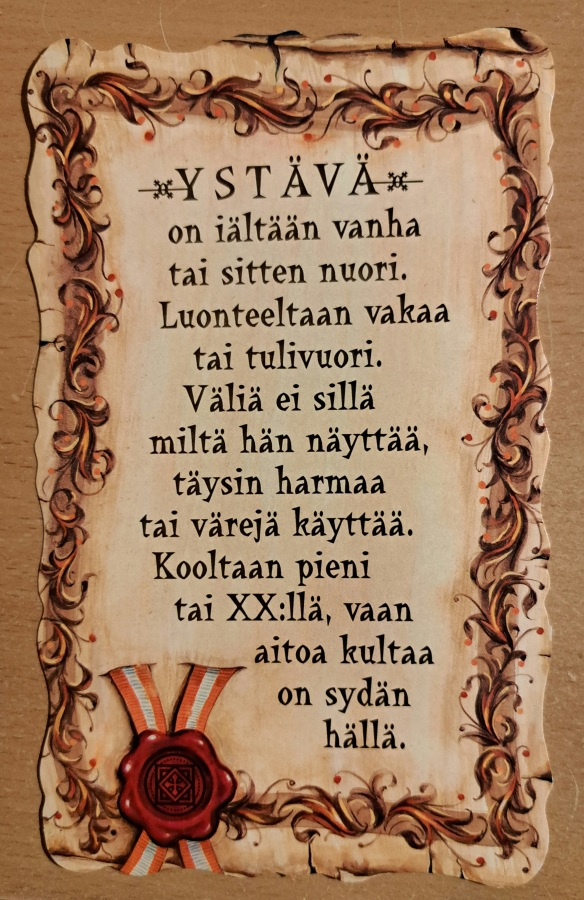 YSTÄVÄ
on iältään vanha
tai sitten nuori.
Luonteeltaan vakaa
tai tulivuori.
Väliä ei sillä
miltä hän näyttää,
täysin harmaa
tai värejä käyttää.
Kooltaan pieni
tai XX:llä, vaan
aitoa kultaa
on sydän
hällä.